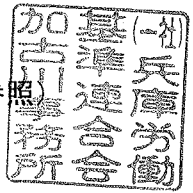 (一社)兵庫労働
基準連合会
加古川事務所
照)